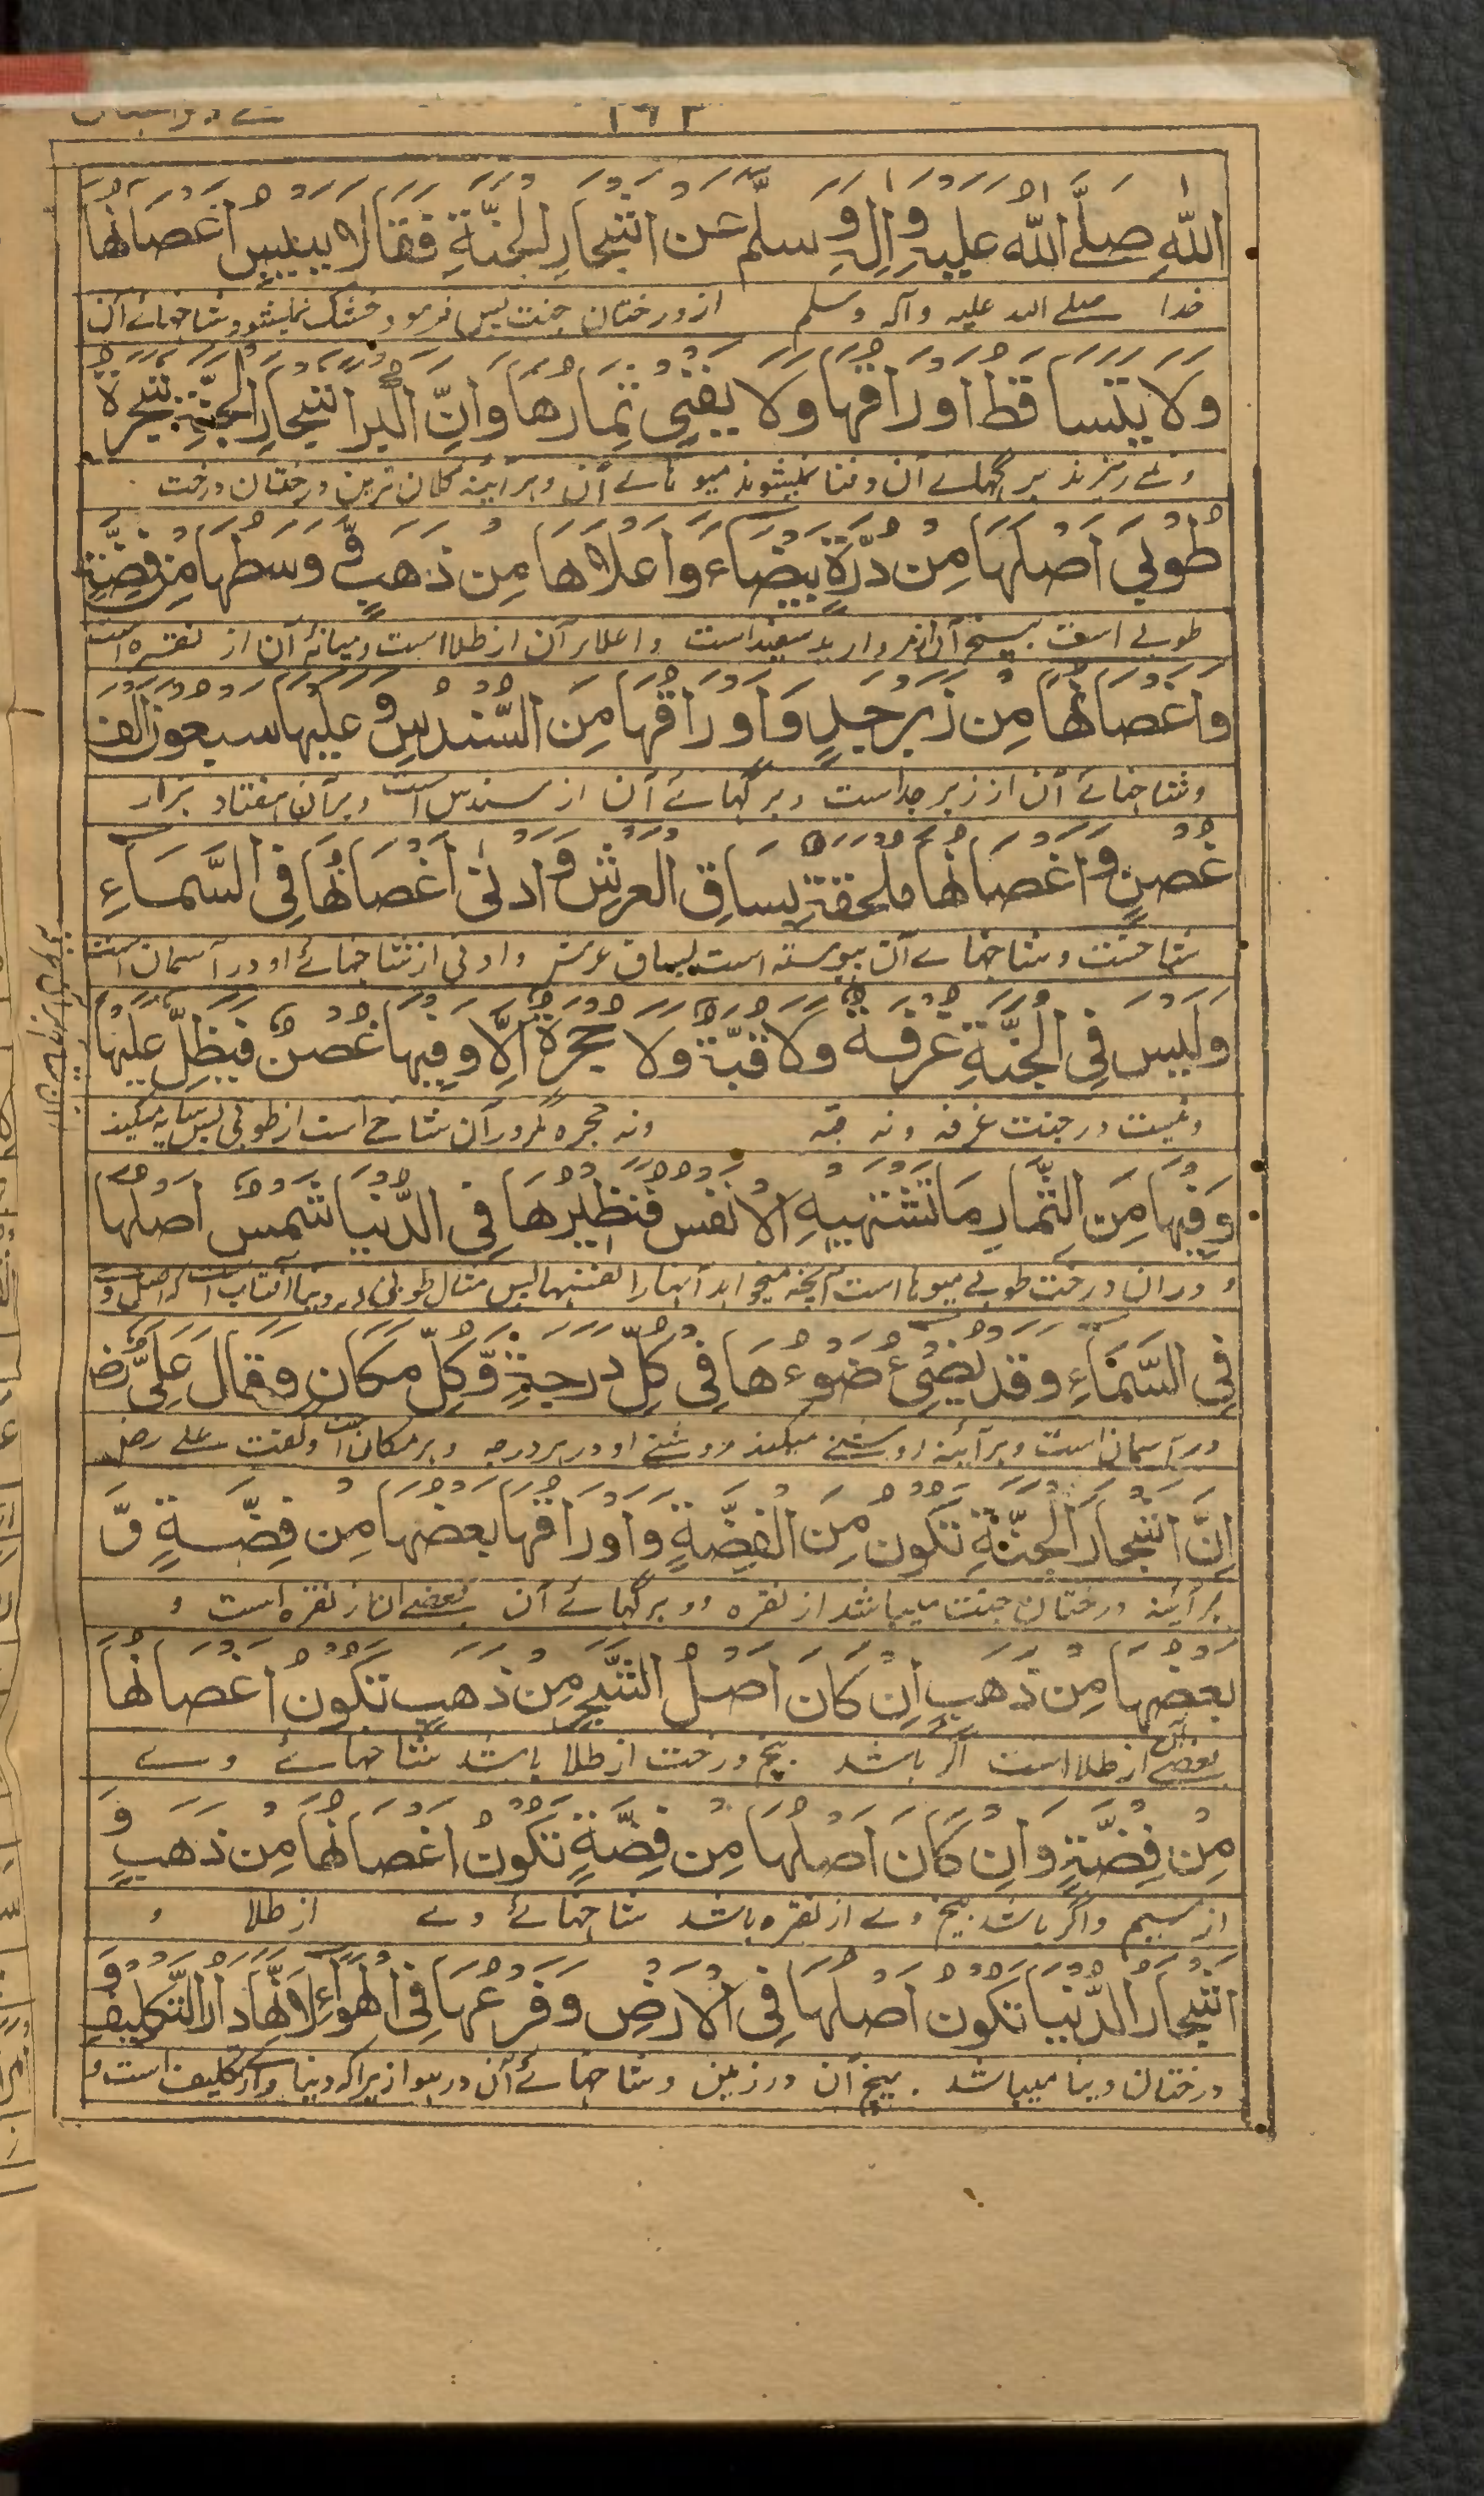 ١٦٣
اللّٰهِ صَلَّے اللّٰهُ عَلَيْهِ وَاٰلِهٖ وَسَلَّمَ عَنْ اَشْجَارِ الْجَنَّةِ فَقَالَ لَا يَيْبَسُ اَغْصَانُهَا
خدا صلے اللہ علیہ وآلہ وسلم از درختان جنت پس فرمود خشک نمیشود شاخہائے آن
وَلَا يَتَسَاقَطُ اَوْرَاقُهَا وَلَا يَفْنٰى ثِمَارُهَا وَاِنَّ اَكْبَرَ اَشْجَارِ الْجَنَّةِ شَجَرَةُ
و نمے ریزند برگہائے آن و فنا نمیشوند میوہائے آن و ہر آئینہ کلان ترین درختان درخت
طُوْبٰى اَصْلُهَا مِنْ دُرَّةٍ بَيْضَاءَ وَاَعْلَاهَا مِنْ ذَهَبٍ وَّ وَسَطُهَا مِنْ فِضَّةٍ
طوبے است بیخ آن از مروارید سفید است و اعلاے آن از طلا است و میانۂ آن از نقرہ است
وَاَغْصَانُهَا مِنْ زَبَرْجَدٍ وَاَوْرَاقُهَا مِنَ السُّنْدُسِ وَ عَلَيْهَا سَبْعُوْنَ اَلْفَ
و شاخہائے آن از زبرجد است و برگہائے آن از سندس است و بر آن ہفتاد ہزار
غُصْنٍ وَ اَغْصَانُهَا مُلْحَقَةٌ بِسَاقِ الْعَرْشِ وَ اَدْنٰى اَغْصَانُهَا فِى السَّمَاءِ
شاخست و شاخہاے آن پیوستہ است بساق عرش و ادنی از شاخہائے او در آسمان است
وَلَيْسَ فِى الْجَنَّةِ غُرْفَةٌ وَلَا قُبَّةٌ وَلَا حُجْرَةٌ اِلَّا وَفِيْهَا غُصْنٌ فَيُظِلُّ عَلَيْهَا
و نیست در جنت غرفہ و نہ قبہ و نہ حجرہ مگر در آن شاخ است از طوبی پس سایہ میکند
وَفِيْهَا مِنَ الثِّمَارِ مَا تَشْتَهِيْهِ الْاَنْفُسُ فَنَظِيْرُهَا فِى الدُّنْيَا شَمْسٌ اَصْلُهَا
و در ان درخت طوبے میوہا است آنچہ میخواہد آنہا را نفسہا پس مثال طوبی در دنیا آفتاب است کہ اصل
فِى السَّمَاءِ وَقَدْ يُضِئُ ضَوْءُهَا فِى كُلِّ دَرَجَةٍ وَّكُلِّ مَكَانٍ وَقَالَ عَلِىٌّ رض
در آسمان است و ہر آئینہ روشنے میکند روشنے او در ہر درجہ و ہر مکان است و گفت علے رض
اِنَّ اَشْجَارَ الْجَنَّةِ تَكُوْنُ مِنَ الْفِضَّةِ وَاَوْرَاقُهَا بَعْضُهَا مِنْ فِضَّةٍ وَّ
ہر آئینہ درختان جنت میباشد از نقرہ و برگہائے آن بعضے ان از نقرہ است و
بَعْضُهَا مِنْ ذَهَبٍ اِنْ كَانَ اَصْلُ الشَّجَرِ مِنْ ذَهَبٍ تَكُوْنُ اَغْصَانُهَا
بعضے آن از طلا است اگر باشد بیخ درخت از طلا باشد شاخہائے وے
مِنْ فِضَّةٍ وَاِنْ كَانَ اَصْلُهَا مِنْ فِضَّةٍ تَكُوْنُ اَغْصَانُهَا مِنْ ذَهَبٍ وَ
از سیم و اگر باشد بیخ وے از نقرہ باشد شاخہائے وے از طلا و
اَشْجَارُ الدُّنْيَا تَكُوْنُ اَصْلُهَا فِى الْاَرْضِ وَفَرْعُهَا فِى الْهَوَاءِ لِاَنَّهَا دَارُ التَّكْلِيْفِ وَ
درختان دنیا میباشد بیخ آن در زمین و شاخہائے آن در ہوا زیراکہ دنیا تکلیف است و